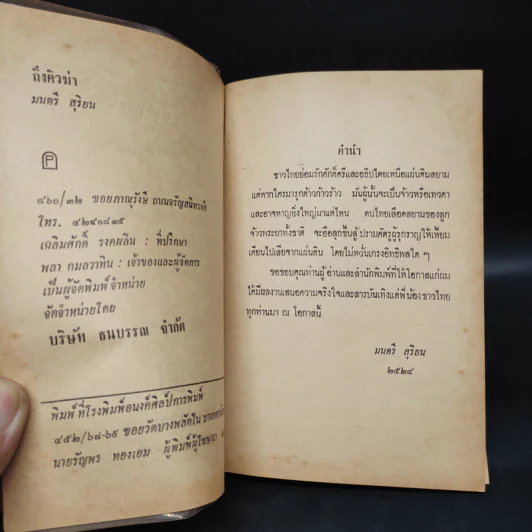 ถึงคิวฆ่า
มนตรี สุริยน
๔๖๐/๓๒ ซอยภาณุรังษี ถนนจรัญสนิทวงศ์
โทร. ๔๒๔๐๘๑๕
เฉลิมศักดิ์ รงคผลิน : ที่ปรึกษา
พลา กมลวาทิน : เจ้าของและผู้จัดการ
เป็นผู้จัดพิมพ์ จำหน่าย
จัดจำหน่ายโดย
บริษัท ธนบรรณ จำกัด
พิมพ์ที่โรงพิมพ์อนงค์ศิลป์การพิมพ์
๔๕๒/๖๘-๖๙ ซอยวัดบางพลัดใน
นายรัญพร ทองเอม ผู้พิมพ์ผู้โฆษณา
คำนำ
ชาวไทยย่อมรักศักดิ์ศรีและอธิปไตยเหนือแผ่นดินสยาม
แต่หากใครมารุกด้าวก้าวร้าว มันผู้นั้นจะเป็นจ้าวหรือเทวดา
และอาจหาญยิ่งใหญ่มาแต่ไหน คนไทยเลือดสยามของลูก
จ้าวพระยาทั้งชาติ จะฮือลุกขึ้นสู้ ปราบศัตรูผู้รุกรานให้เหี้ยม
เตียนไปเสียจากแผ่นดิน โดยไม่หวั่นเกรงอิทธิพลใด ๆ
ขอขอบคุณท่านผู้อ่านและสำนักพิมพ์ที่ให้โอกาสแก่ผม
ได้มีผลงานเสนอความจริงใจและสารบันเทิงแด่พี่น้องชาวไทย
ทุกท่านมา ณ โอกาสนี้
มนตรี สุริยน
๒๕๒๔